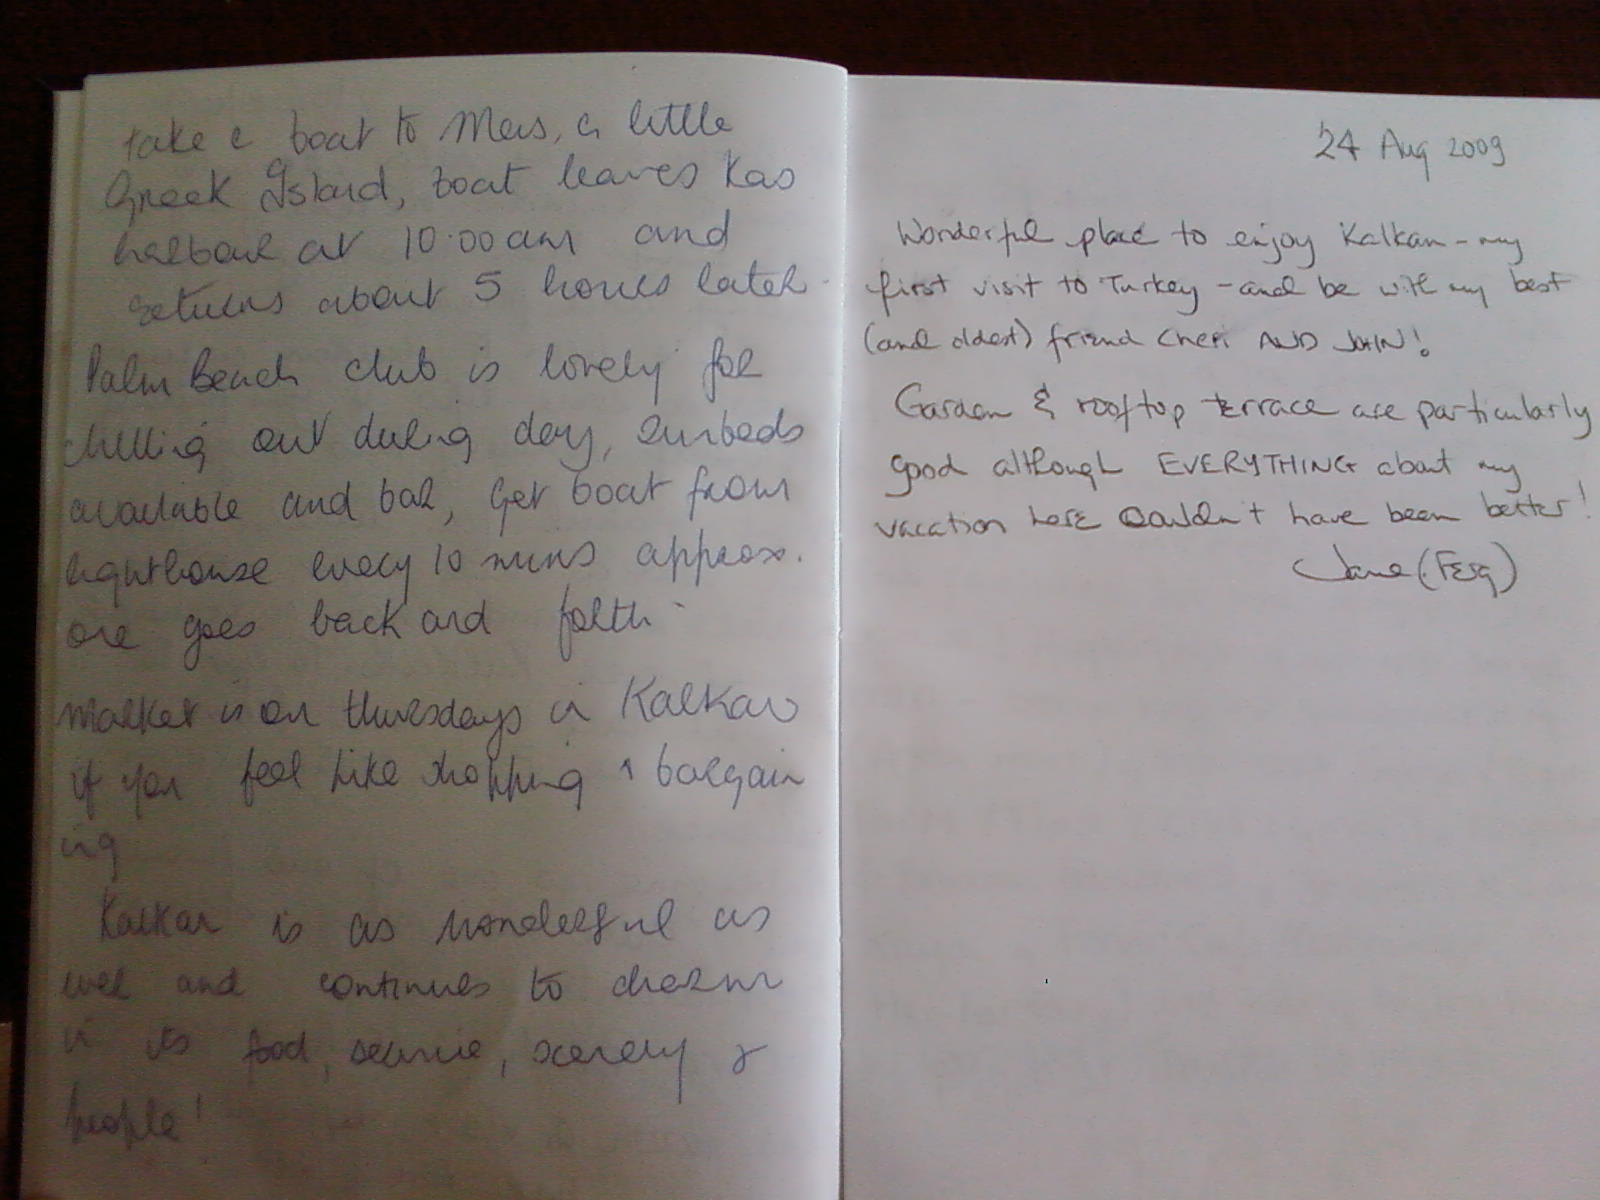 take a boat to Meis, a little
Greek Island, boat leaves Kas
harbour at 10.00am and
returns about 5 hours later.
Palm Beach club is lovely for
chilling out during day, sunbeds
available and bar, get boat from
lighthouse every 10 mins approx.
one goes back and forth.
Market is on thursdays in Kalkan
if you feel like shopping & bargain
ing
Kalkan is as wonderful as
ever and continues to charm
in its food, service, scenery &
people!
24 Aug 2009
Wonderful place to enjoy Kalkan - my
first visit to Turkey - and be with my best
(and oldest) friend Cheri AND JOHN!
Garden & rooftop terrace are particularly
good although EVERYTHING about my
vacation here couldn't have been better!
Jane